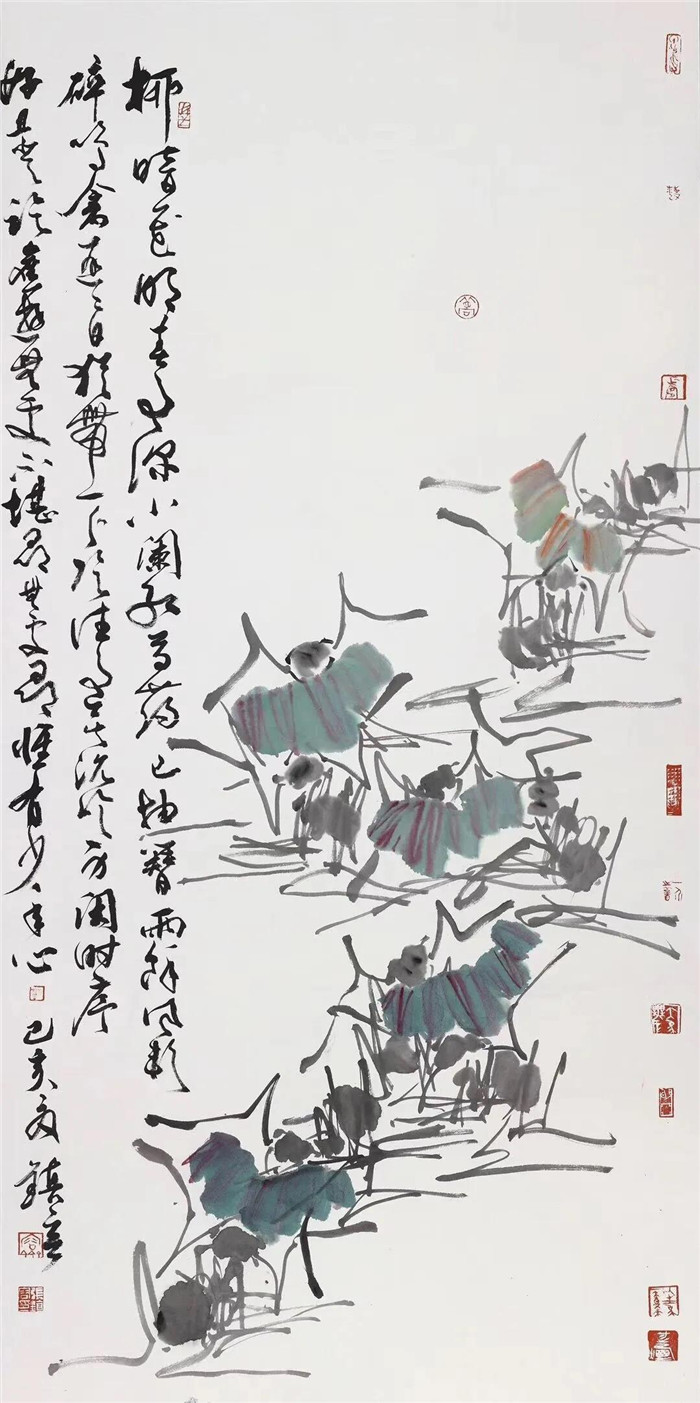 柳暗花明春事深小阑红芍药已抽簪雨余风软
碎鸣禽迟迟日犹带一分阴往事莫沉吟身闲时序
好且登临旧游无处不堪寻无处寻惟有少年心
己亥夏 鎮